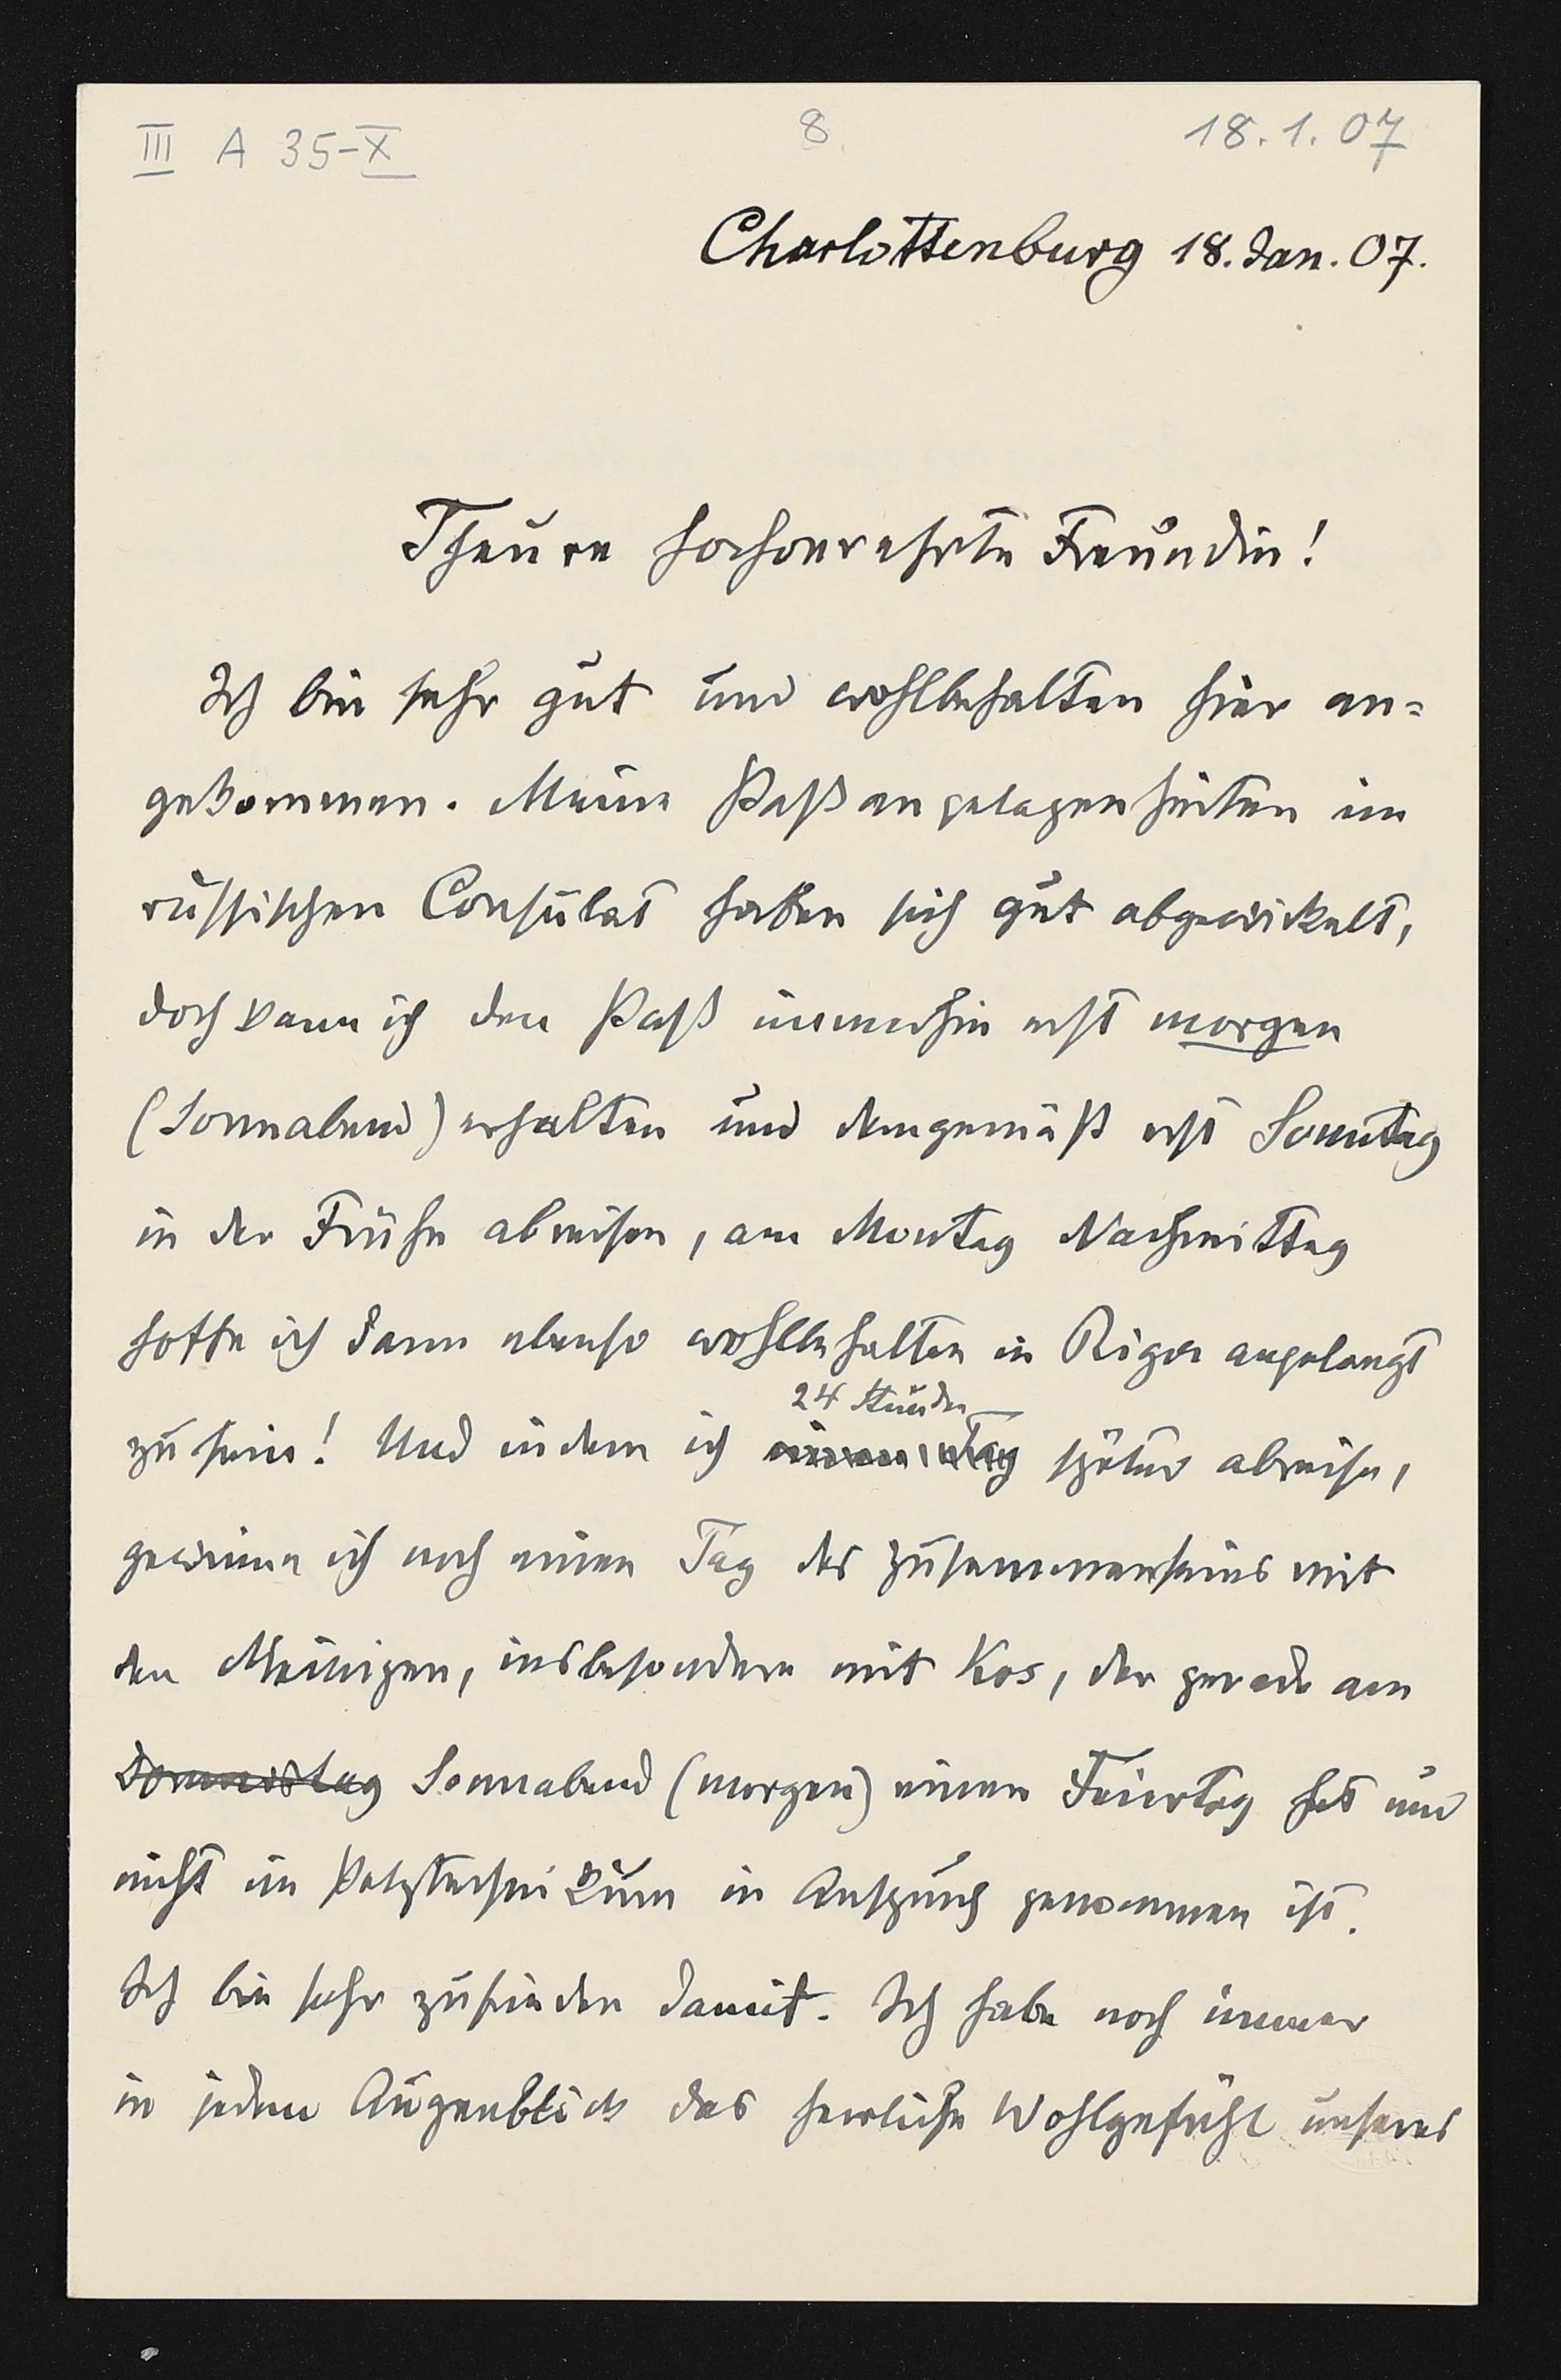 III A 35-X
8
18.1.07
Charlottenburg 18. Jan. 07.
Theure hochverehrte Freundin!
Ich bin sehr gut und wohlbehalten hier an=
gekommen. Meine Paßangelegenheiten im
russischen Consulat haben sich gut abgewickelt,
doch kann ich den Paß immerhin erst morgen
(Sonnabend) erhalten und demgemäß erst Sonntag
in der Frühe abreisen, am Montag Nachmittag
hoffe ich dann ebenso wohlbehalten in Riga angelangt
24 Stunden
zu sein! Und indem ich einen Tag später abreise,
gewinne ich noch einen Tag des Zusammenseins mit
den Meinigen, insbesondere mit Kos, der gerade am
Donnerstag Sonnabend (morgen) einen Feiertag hat und
nicht im Polytechnikum in Anspruch genommen ist.
Ich bin sehr zufrieden damit. Ich habe noch immer
in jedem Augenblick das herrliche Wohlgefühl unseres